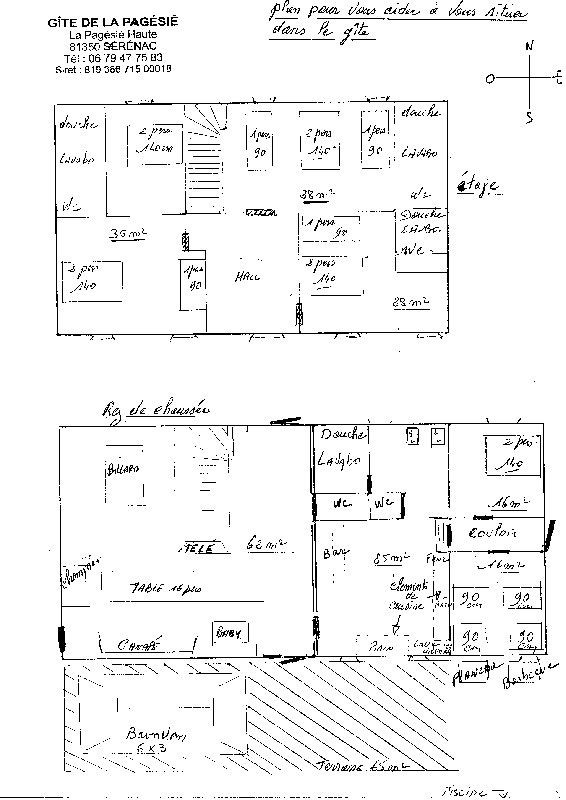 GÎTE DE LA PAGÉSIÉ
La Pagésié Haute
81350 SÉRÉNAC
Tél : 06 79 47 75 83
plan pour vous aider à vous situer
dans le gîte
N
O E
S
étage
douche
Lavabo
Wc
2 pers
140
1 pers
90
2 pers
140
1 pers
90
douche
LAVABO
Wc
38 m²
35 m²
1 pers
90
Douche
LAVABO
Wc
2 pers
140
1 pers
90
HALL
2 pers
140
28 m²
Rg de chaussée
BILLARD
Douche
LAVABO
2 pers
140
16 m²
WC
WC
Couloir
TÉLÉ
62 m²
Bar
85 m²
Four
16 m²
Cheminée
TABLE 16 pers
Elements
de
Cuisine
90
90
90
90
CANAPÉ
BABY
PLANCHA
Barbecue
6 x 3
Terrasse 65 m²
Piscine